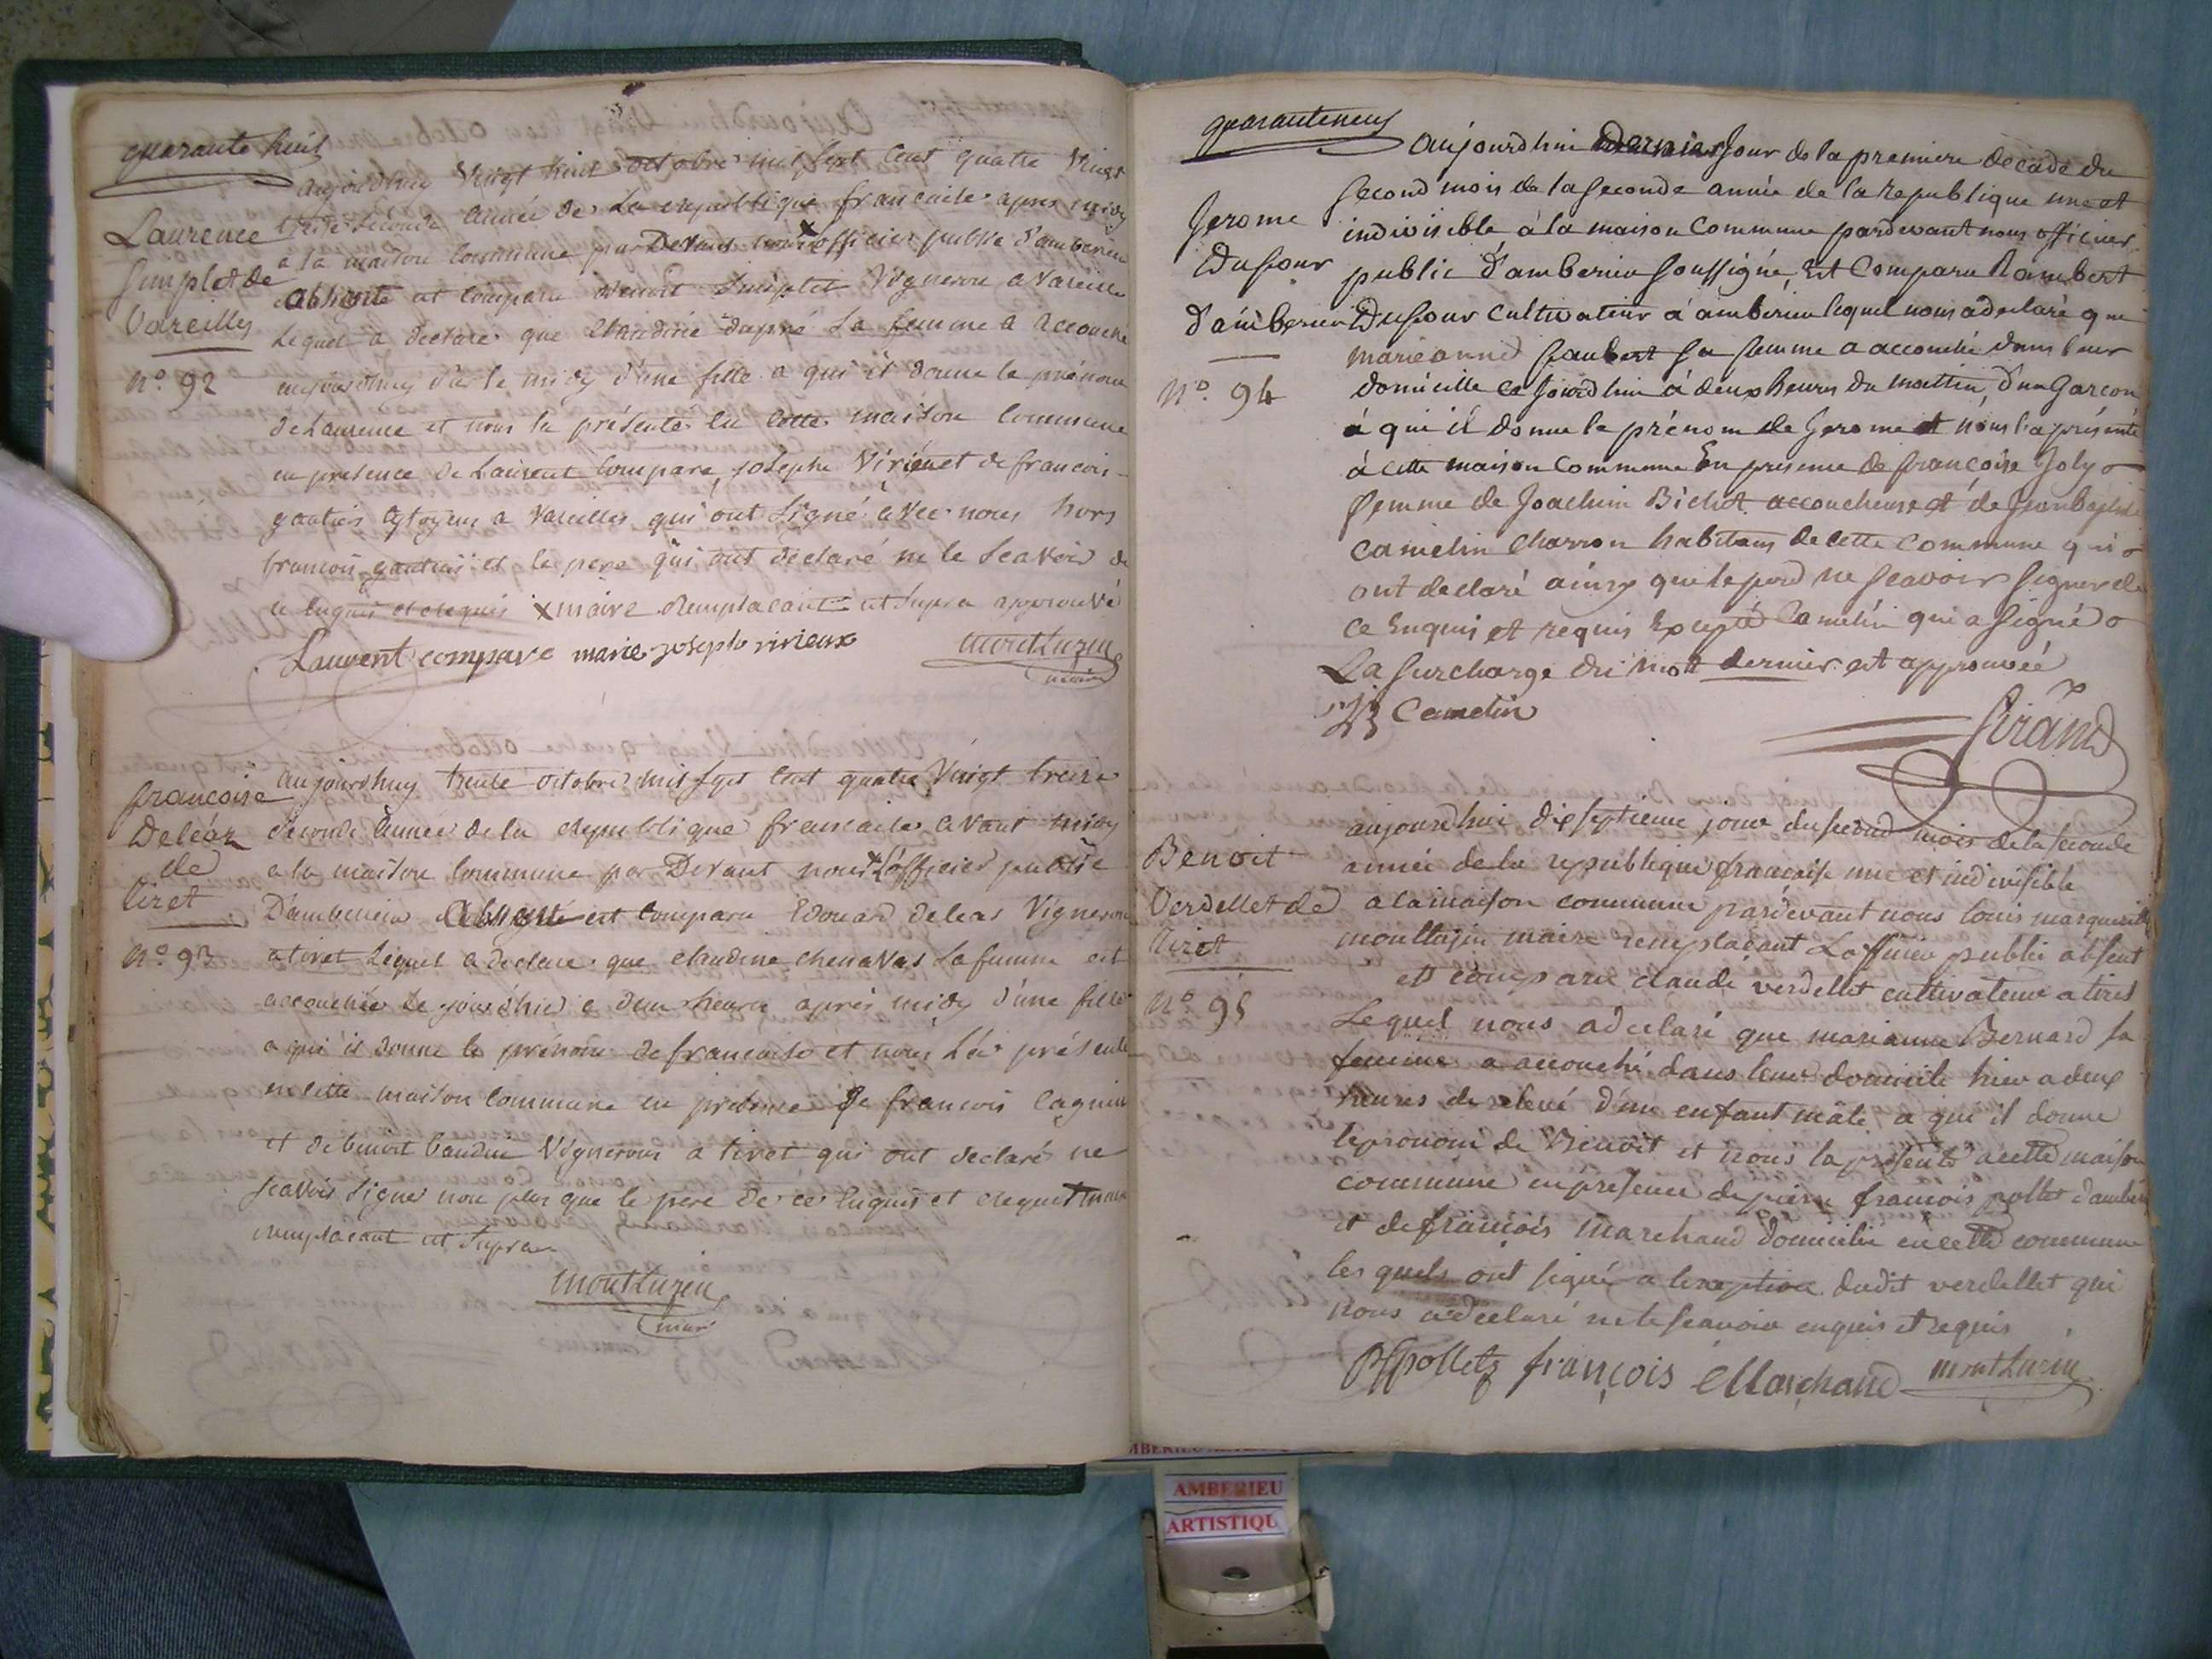 quarante huit
aujourdhuy vingt huit octobre mil sept cent quatre vingt
treize seconde année de la republique francaise apres midy
Laurence
a la maison commune par Devant nous x officier public d'amberieu
Simplet de
absente est comparu Benoit Simplet vigneron a Vareille
Vareilles
Lequel a declare que Claudine dupré sa femme a accouché
n° 92
aujourdhuy sur le midy d'une fille a qui il donne le prénom
de Laurence et nous la présente en cette maison commune
en presence de Laurent Compare, joseph Virieux et de francois
gautier citoyens a Vareilles qui ont signé avec nous hors
francois gautier et le pere qui ont déclaré ne le scavoir de
ce enquis et requis x maire remplacant ut supra approuvé
Laurent compare marie joseph virieux montluzin
maire
francoise
Deléaz
de
tiret
n° 93
aujourdhuy trente octobre mil sept cent quatre vingt treize
seconde année de la republique francaise avant midy
a la maison commune par Devant nous x L'officier public
D'amberieu absent est comparu Edouard deleas Vigneron
a tiret Lequel a declare que claudine chenavas sa femme est
accouchée de jour d'hier a deux heures après midy d'une fille
a qui il donne le prénom de francoise et nous l'a présenté
en cette maison commune en présence de francois cagnin
et de benoit baudin Vignerons a tiret qui ont declaré ne
scavoir signer non plus que le pere de ce enquis et requis x maire
remplacant ut supra
montluzin
maire
quaranteneuf
aujourdhui dernier Jour de la premiere decade du
second mois de la seconde année de la republique une et
Jerome
indivisible à la maison Commune pardevant nous officier
Dufour
public d'amberieu soussigné, Est Comparu Rambert
d'amberieu
Dufour Cultivateur à amberieu lequel nous a declaré que
marieanne Jaubert sa femme a accouché dans leur
n° 94
domicille cejourdhui à deux heures du mattin, d'un Garcon
à qui il donne le prénom de Jerome et nous l'a présenté
à cette maison Commune En presence de francoise Joly
femme de Joachim Bichot accoucheuse et de Jeanbaptiste
Camelin Charron habitans de cette Commune qui
ont declaré ainsy que le pere ne scavoir signer de
ce Enquis et requis Excepté Camelin qui a signé
La surcharge du mott dernier est approuvée
JB Camelin
Sirand
aujourdhui dixseptieme jour du second mois de la seconde
Benoit
année de la republique francaise une et indivisible
Verdellet de
a la maison commune pardevant nous louis marguerite
tiret
montluzin maire remplaçant L'officier public absent
est comparu claude verdellet cultivateur a tiret
n° 95
Lequel nous a declaré que marianne Bernard sa
femme a accouché dans leur domicile hier a deux
heures de relevé d'un enfant mâle a qui il donne
le prenom de Benoit et nous la présenté a cette maison
commune en presence de pierre francois pollet d'amberieu
et de francois marchand domicilié en cette commune
les quels ont signé a lexeption dudit verdellet qui
nous a declaré ne le scavoir enquis et requis
PFpollet françois Marchand montluzin
AMBERIEU
ARTISTIQU